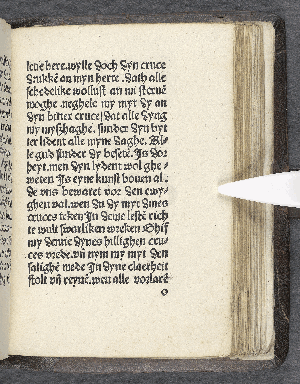 leue here. wylle doch dyn cruce
drukkē an myn herte. dath alle
schedelike wollust an mi steruē
moghe. neghele my myt dy an
dyn bitter cruce/ dat alle dyng
my myszhaghe. sunder dyn byt
ter lident alle myne daghe. Wi
le gud sunder dy besetē. Is dor
heyt. men dyn lydent wol ghe
weten Is eyne kunst bouen al
de vns bewaret vor den ewy
ghen val. wen du dy myt dines
cruces teken In deme lestē rich
te wult swarliken wreken Ghif
my denne dynes hillighen cru
ces vrede. vn̄ nym my myt den
salighē mede In dyne claerheit
stolt vn̄ reyne. wen alle vorlarē